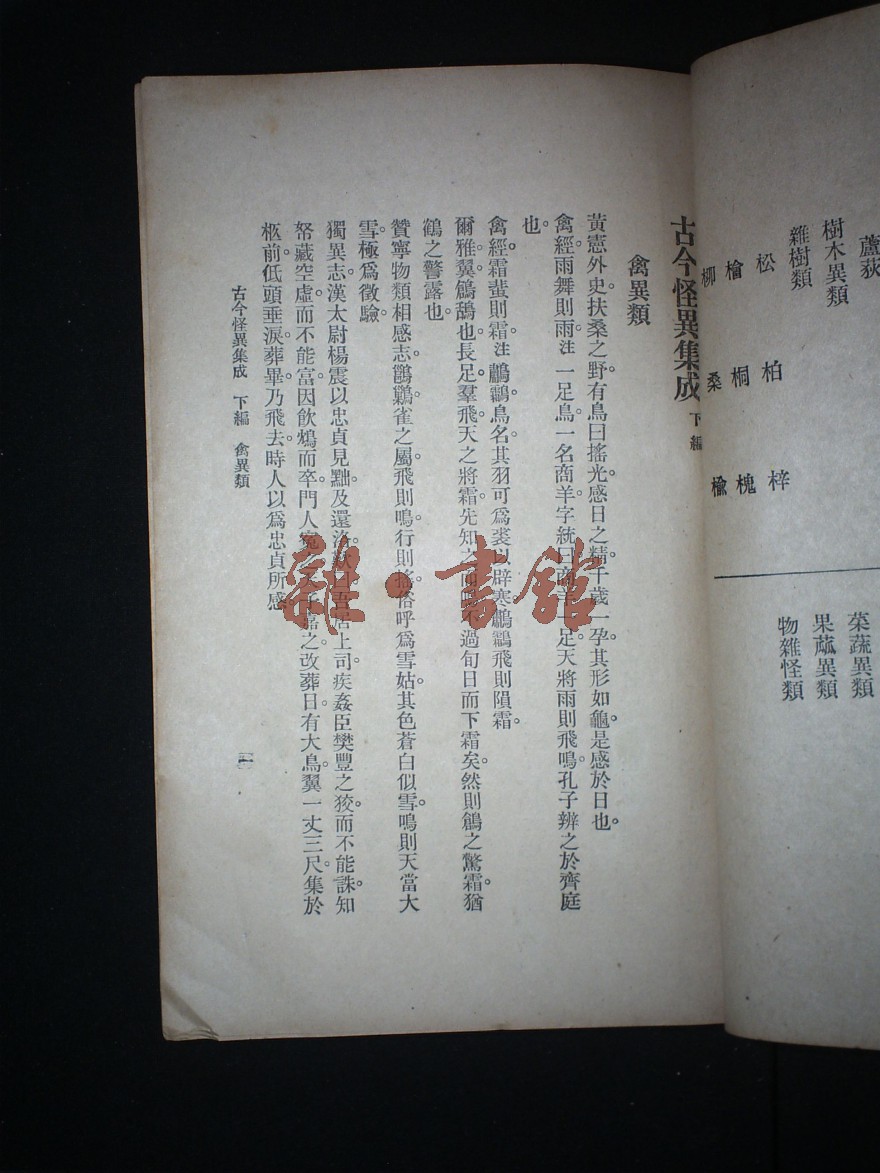 蘆荻
樹木異類
雜樹類
松 柏 梓
檜 桐 槐
柳 桑 楡
菜蔬異類
果蓏異類
物雜怪類
古今怪異集成 下編
禽異類
黃憲外史扶桑之野有鳥曰搖光感日之精千歲一孕其形如龜是感於日也。
禽經雨舞則雨注一足鳥一名商羊字統曰商羊一足天將雨則飛鳴孔子辨之於齊庭
也。
禽經霜蜚則霜注鸕鷀鳥名其羽可爲裘以辟寒鸕鷀飛則隕霜。
爾雅翼鶬鴰也長足羣飛天之將霜先知之而鳴不過旬日而下霜矣然則鶬之驚霜猶
鶴之警露也。
贊寧物類相感志鶺鴒雀之屬飛則鳴行則搖俗呼爲雪姑其色蒼白似雪鳴則天當大
雪極爲徵驗。
獨異志漢太尉楊震以忠貞見黜及還洛歎曰吾居上司疾姦臣樊豐之狡而不能誅知
帑藏空虛而不能富因飲鴆而卒門人冤之天子嘉之改葬日有大鳥翼一丈三尺集於
柩前低頭垂淚葬畢乃飛去時人以爲忠貞所感
古今怪異集成 下編 禽異類
一
雜·書館